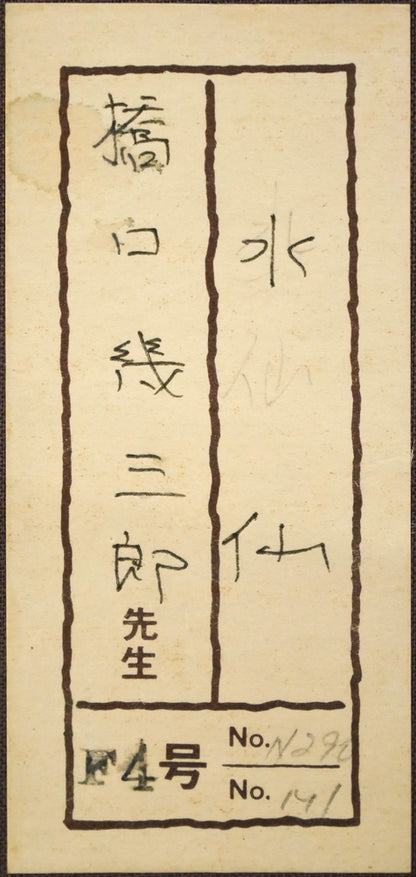 水仙
橋口幾三郎先生
F4号
No. N290
No. 141